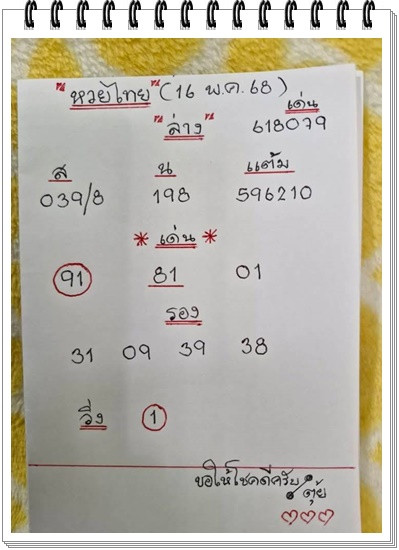 "หวยไทย" (16 พ.ค.68)
เด่น
"ล่าง" 618079
ส น แต้ม
039/8 198 596210
* เด่น *
91 81 01
รอง
31 09 39 38
วิ่ง 1
ขอให้โชคดีครับ
ตุ้ย